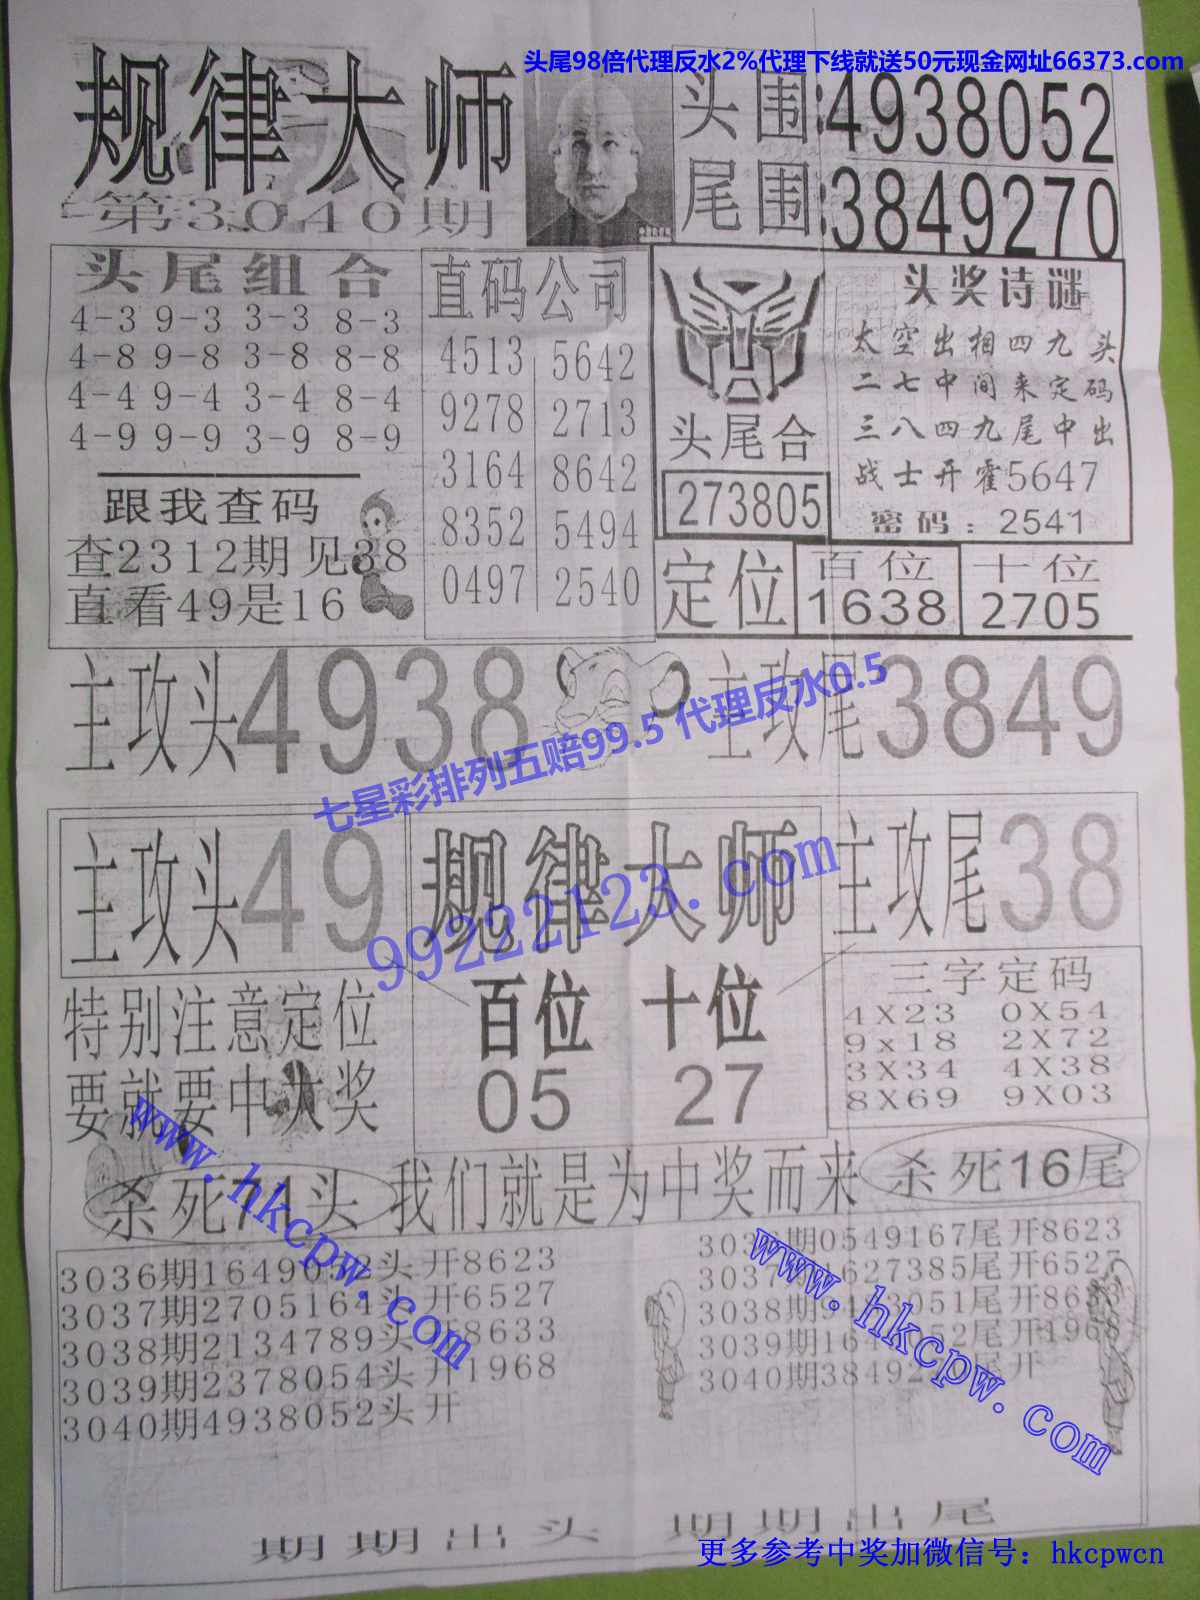 头尾98倍代理反水2%代理下线就送50元现金网址66373.com
规律大师
第3040期
头围:4938052
尾围:3849270
头尾组合
4-3 9-3 3-3 8-3
4-8 9-8 3-8 8-8
4-4 9-4 3-4 8-4
4-9 9-9 3-9 8-9
跟我查码
查2312期见38
直看49是16
直码公司
4513 5642
9278 2713
3164 8642
8352 5494
0497 2540
头尾合
273805
头奖诗谜
太空出相四九头
二七中间来定码
三八四九尾中出
战士开霍5647
密码:2541
定位
百位
1638
十位
2705
主攻头4938
主攻尾3849
七星彩排列五赔99.5 代理反水0.5
主攻头49
规律大师
主攻尾38
99222123.com
特别注意定位
要就要中大奖
百位 十位
05 27
三字定码
4X23 0X54
9x18 2X72
3X34 4X38
8X69 9X03
www.hkcpw.com
杀死71头
我们就是为中奖而来
杀死16尾
3036期1649053头开8623
3037期2705164头开6527
3038期2134789头开8633
3039期2378054头开1968
3040期4938052头开
期0549167尾开8623
627385尾开6527
3038期 051尾开86
3039期164 052尾开1968
3040期3849270尾开
www.hkcpw.com
期期出头 期期出尾
更多参考中奖加微信号：hkcpwcn